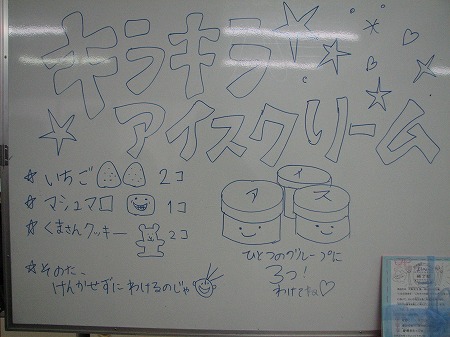 キラキラ
アイスクリーム
いちご 2コ
マシュマロ 1コ
くまさんクッキー 2コ
その他、
けんかせずにわけるのじゃ
ア イ ス
ひとつのグループに
3つ!
わけてね